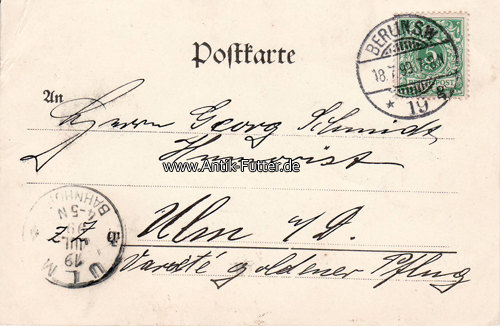 Postkarte
BERLIN.S.W.
18.7.99. 7-8N
* 19
An
Herrn Georg Schmidt
Humorist
www.Antik-Futter.de
z. Z.
Ulm a/D.
Varieté goldener Pflug
ULM
19
JUL
99
4-5N
BAHNHOF